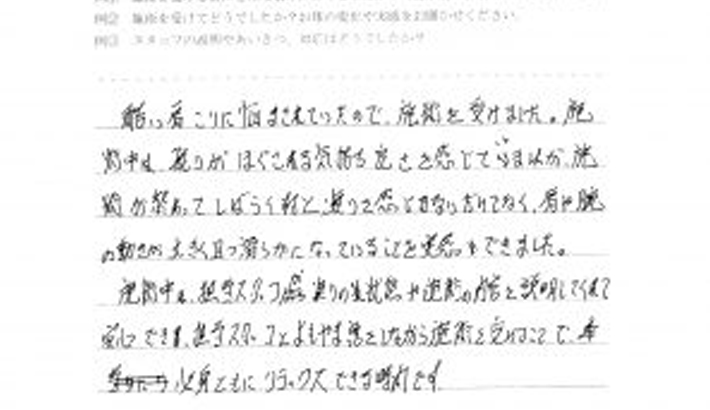 例② 施術を受けてどうでしたか？お体の変化や実感をお聞かせください。
例③ スタッフの説明やあいさつ、対応はどうでしたか？
酷い肩こりに悩まされていたので、施術を受けました。施
術中は、凝りがほぐされる気持ち良さを感じていましたが、施
術が終わってしばらく経つと凝りを感じさせないだけでなく、肩や腕
の動きが大きく且つ滑らかになっていることを実感できました。
施術中は、担当スタッフが凝りの状態や施術の内容を説明してくれて
安心できます。担当スタッフとよもやま話をしながら施術を受けることで、
心身ともにリラックスできる時間です。